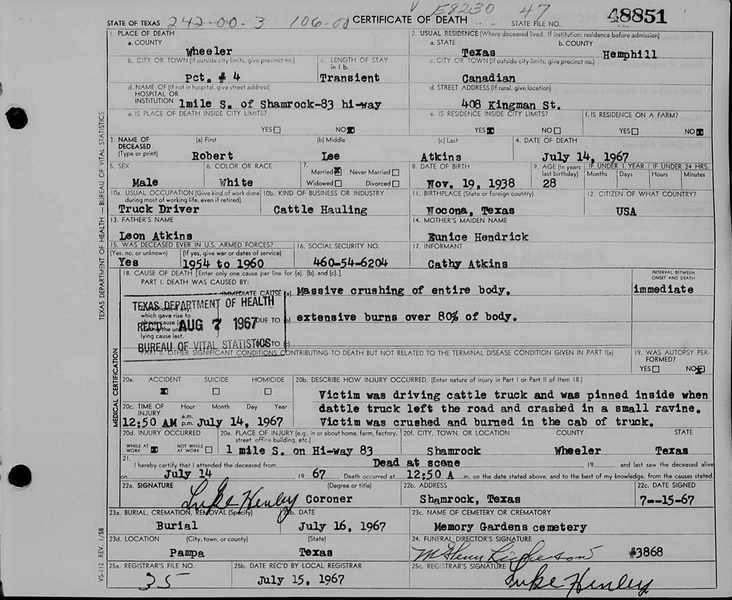 V E8230 47
STATE OF TEXAS 242-00-3 106-00 CERTIFICATE OF DEATH STATE FILE NO. 48851
1. PLACE OF DEATH
a. COUNTY
Wheeler
2. USUAL RESIDENCE (Where deceased lived. If institution: residence before admission)
a. STATE b. COUNTY
Texas Hemphill
b. CITY OR TOWN (If outside city limits, give precinct no.) c. LENGTH OF STAY in 1 b.
Pct. # 4 Transient
c. CITY OR TOWN (If outside city limits, give precinct no.)
Canadian
d. NAME OF (If not in hospital, give street address) HOSPITAL OR INSTITUTION
1mile S. of Shamrock-83 hi-way
d. STREET ADDRESS (If rural, give location)
408 Kingman St.
e. IS PLACE OF DEATH INSIDE CITY LIMITS?
YES NO X
e. IS RESIDENCE INSIDE CITY LIMITS?
YES X NO
f. IS RESIDENCE ON A FARM?
YES NO X
3. NAME OF DECEASED (Type or print)
(a) First (b) Middle (c) Last
Robert Lee Atkins
4. DATE OF DEATH
July 14, 1967
5. SEX
Male
6. COLOR OR RACE
White
7. Married X Never Married
Widowed Divorced
8. DATE OF BIRTH
Nov. 19, 1938
9. AGE (In years last birthday)
28
IF UNDER 1 YEAR IF UNDER 24 HRS.
Months Days Hours Minutes
10a. USUAL OCCUPATION (Give kind of work done during most of working life, even if retired)
Truck Driver
10b. KIND OF BUSINESS OR INDUSTRY
Cattle Hauling
11. BIRTHPLACE (State or foreign country)
Nocona, Texas
12. CITIZEN OF WHAT COUNTRY?
USA
13. FATHER'S NAME
Leon Atkins
14. MOTHER'S MAIDEN NAME
Eunice Hendrick
15. WAS DECEASED EVER IN U.S. ARMED FORCES?
(Yes, no, or unknown) (If yes, give war or dates of service)
Yes 1954 to 1960
16. SOCIAL SECURITY NO.
460-54-6204
17. INFORMANT
Cathy Atkins
18. CAUSE OF DEATH [Enter only one cause per line for (a), (b), and (c).]
INTERVAL BETWEEN ONSET AND DEATH
PART I. DEATH WAS CAUSED BY:
IMMEDIATE CAUSE (a) Massive crushing of entire body. immediate
TEXAS DEPARTMENT OF HEALTH
REC'D AUG 7 1967
BUREAU OF VITAL STATISTICS
which gave rise to
lying cause last.
DUE TO extensive burns over 80% of body.
PART II. OTHER SIGNIFICANT CONDITIONS CONTRIBUTING TO DEATH BUT NOT RELATED TO THE TERMINAL DISEASE CONDITION GIVEN IN PART I(a)
19. WAS AUTOPSY PERFORMED?
YES NO X
20a. ACCIDENT SUICIDE HOMICIDE
X
20b. DESCRIBE HOW INJURY OCCURRED. (Enter nature of injury in Part I or Part II of item 18.)
Victim was driving cattle truck and was pinned inside when
dattle truck left the road and crashed in a small ravine.
Victim was crushed and burned in the cab of truck.
20c. TIME OF INJURY Hour Month Day Year
a.m.
p.m.
12:50 AM July 14, 1967
20d. INJURY OCCURRED
WHILE AT WORK X NOT WHILE AT WORK
20e. PLACE OF INJURY (e.g., in or about home, farm, factory, street, office building, etc.)
1 mile S. on Hi-way 83
20f. CITY, TOWN, OR LOCATION COUNTY STATE
Shamrock Wheeler Texas
21. I hereby certify that I attended the deceased from Dead at scene 19 and last saw the deceased alive
on July 14 19 67 Death occurred at 12:50 A m. on the date stated above, and to the best of my knowledge, from the causes stated.
22a. SIGNATURE (Degree or title)
Luke Henley Coroner
22b. ADDRESS
Shamrock, Texas
22c. DATE SIGNED
7--15-67
23a. BURIAL, CREMATION, REMOVAL (Specify)
Burial
23b. DATE
July 16, 1967
23c. NAME OF CEMETERY OR CREMATORY
Memory Gardens cemetery
23d. LOCATION (City, town, or county) (State)
Pampa Texas
24. FUNERAL DIRECTOR'S SIGNATURE
#3868
25a. REGISTRAR'S FILE NO.
35
25b. DATE REC'D BY LOCAL REGISTRAR
July 15, 1967
25c. REGISTRAR'S SIGNATURE
Luke Henley
TEXAS DEPARTMENT OF HEALTH — BUREAU OF VITAL STATISTICS
MEDICAL CERTIFICATION
VS-112 REV. 1/58